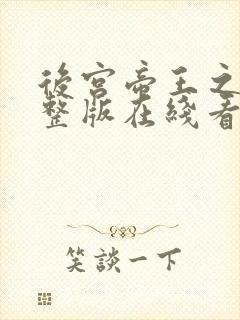 後宫帝王之
整版在綫看
笑談一下